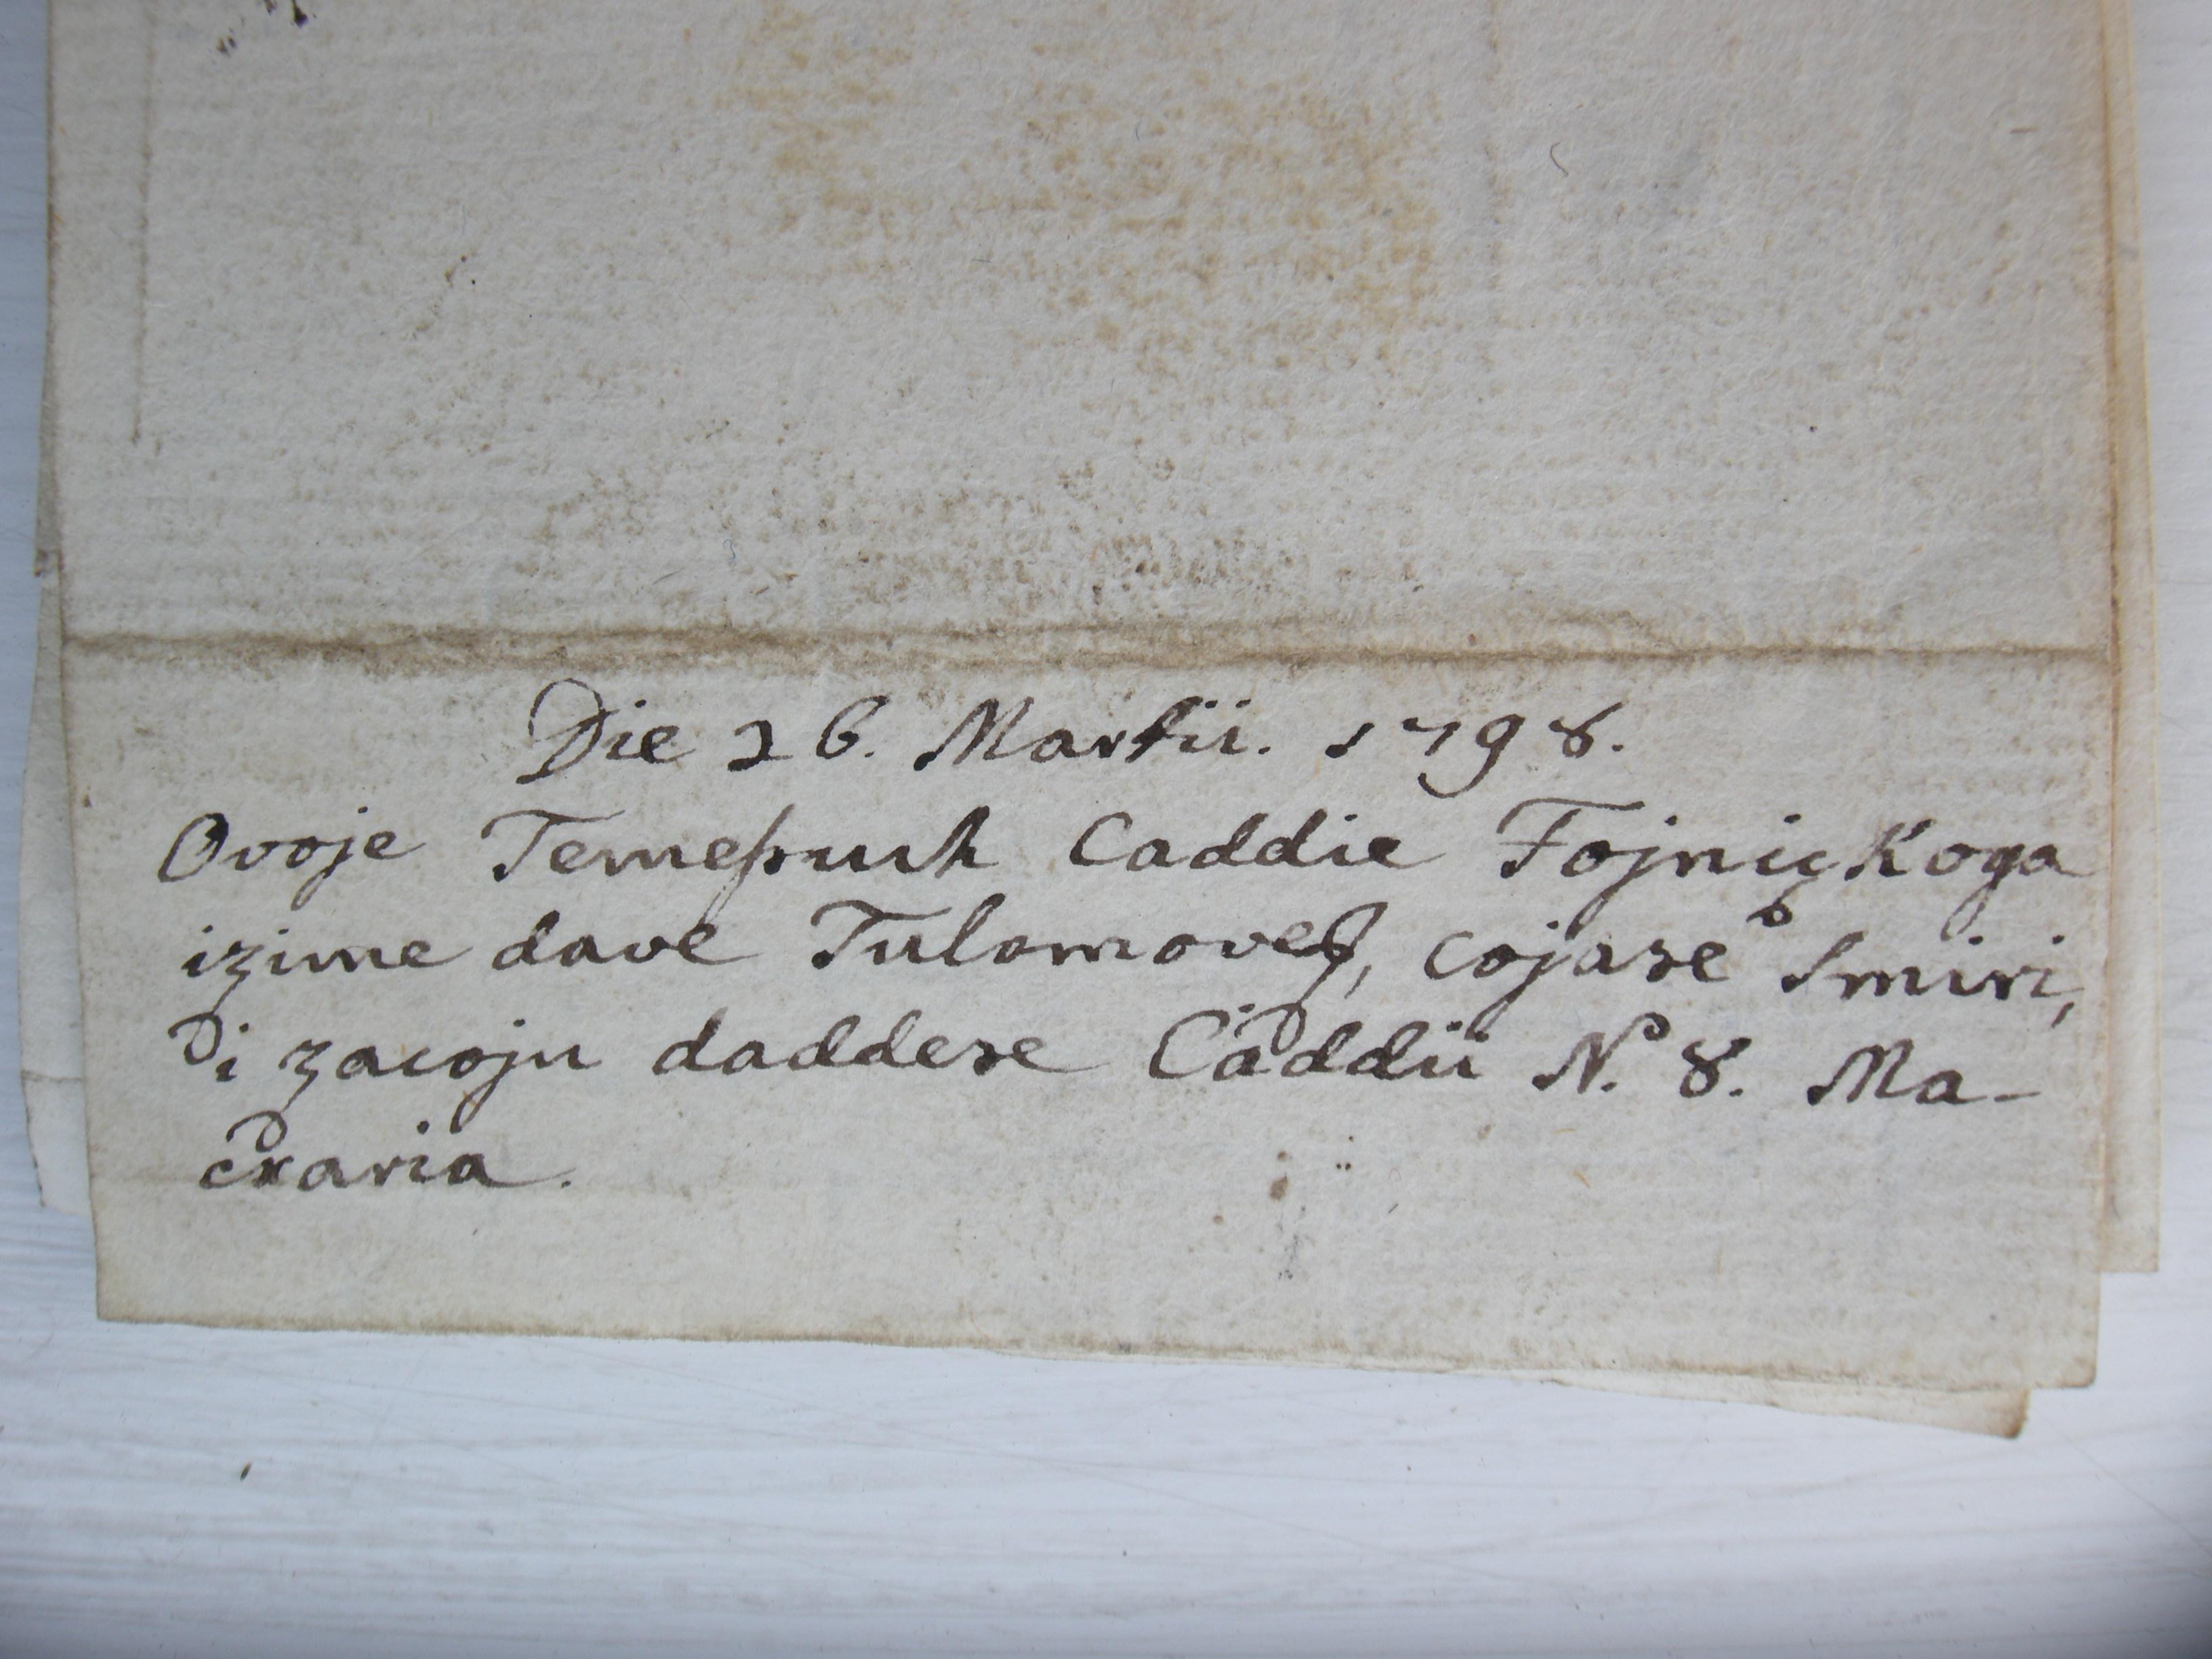 Die 26. Martii. 1798.
Ovoje Temessuch Caddie Fojniçkoga
izime dave Tulomoveş, cojase smiri,
i zacoju daddese Caddii N. 8. Ma-
ckaria.